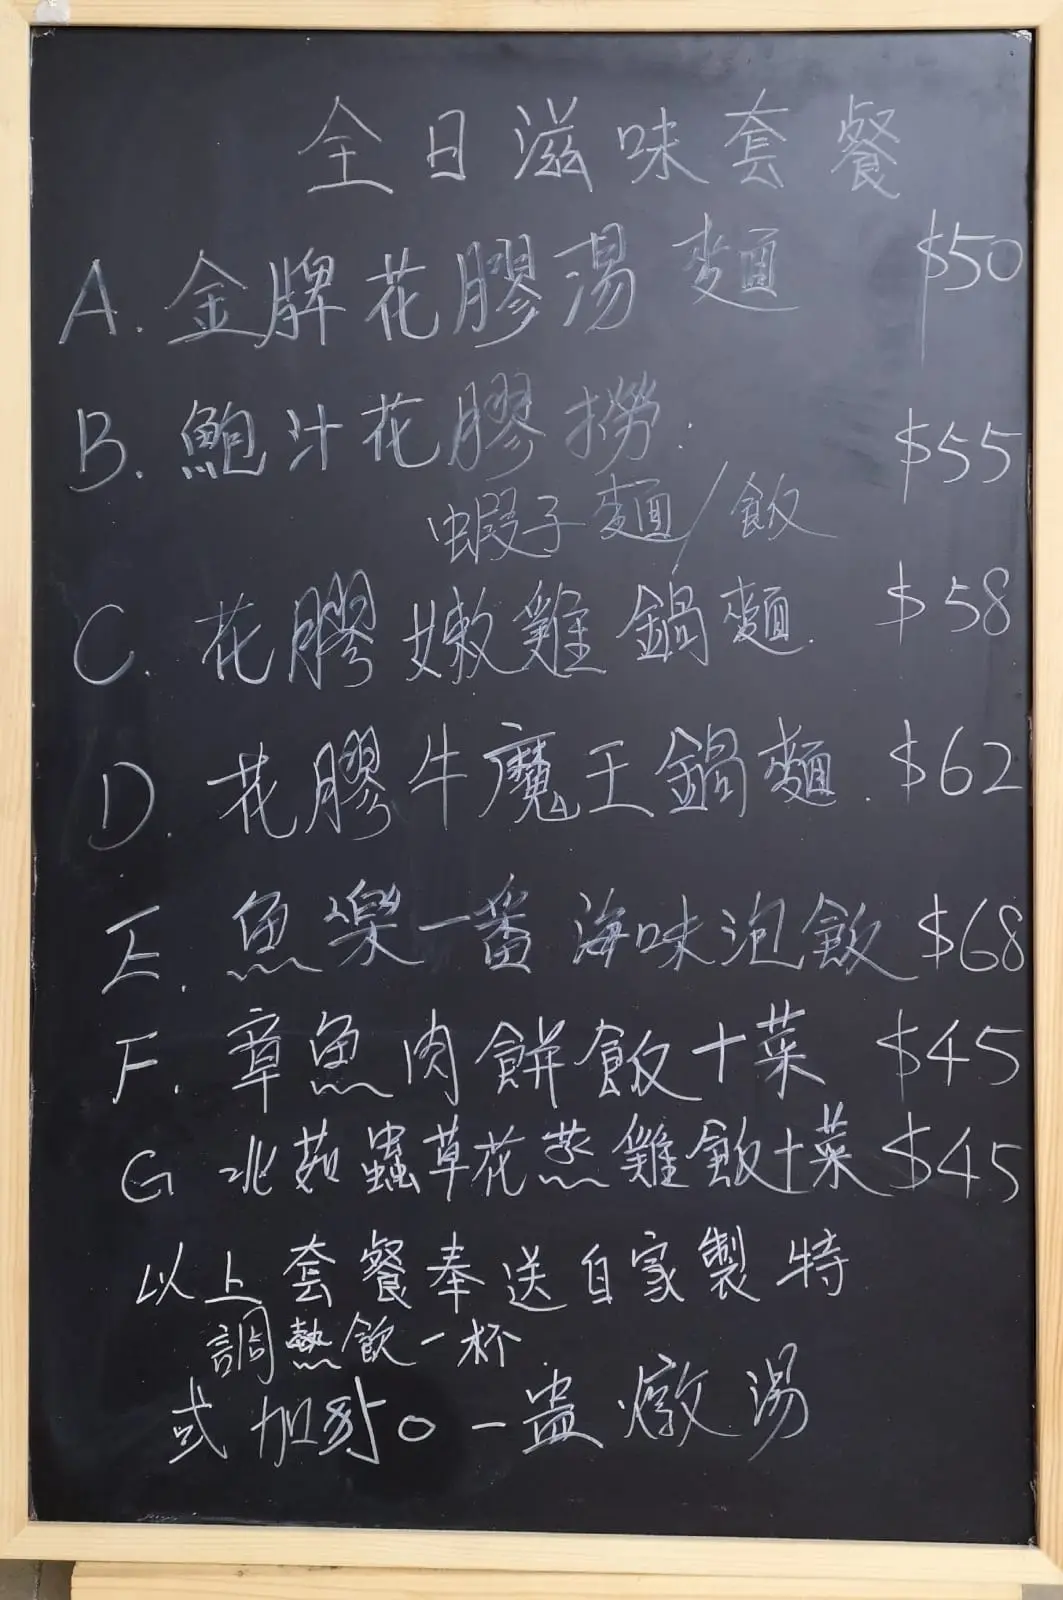 全日滋味套餐
A. 金牌花膠湯麵 $50
B. 鮑汁花膠撈 $55
蝦子麵/飯
C. 花膠嫩雞鍋麵. $58
D 花膠牛魔王鍋麵. $62
E. 魚樂一番海味泡飯 $68
F. 章魚肉餅飯+菜 $45
G 北菇蟲草花蒸雞飯+菜 $45
以上套餐奉送自家製特
調熱飲一杯.
或加 一盅燉湯